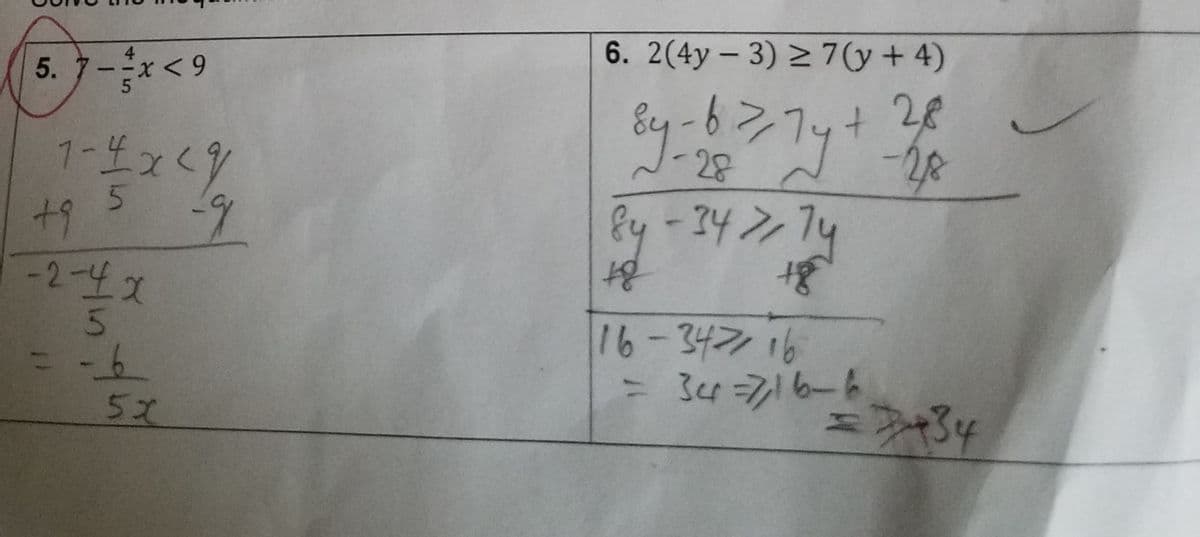 5. 7 - 4/5 x < 9
7 - 4/5 x < 9
+9 -9
-2 - 4/5 x
= -6/5x
6. 2(4y – 3) ≥ 7(y + 4)
8y - 6 ≥ 7y + 28
-28 -28
8y - 34 ≥ 7y
+8 +8
16 - 34 ≥ 16
= 34 = ≥ 16 - 6
= ≥ 34